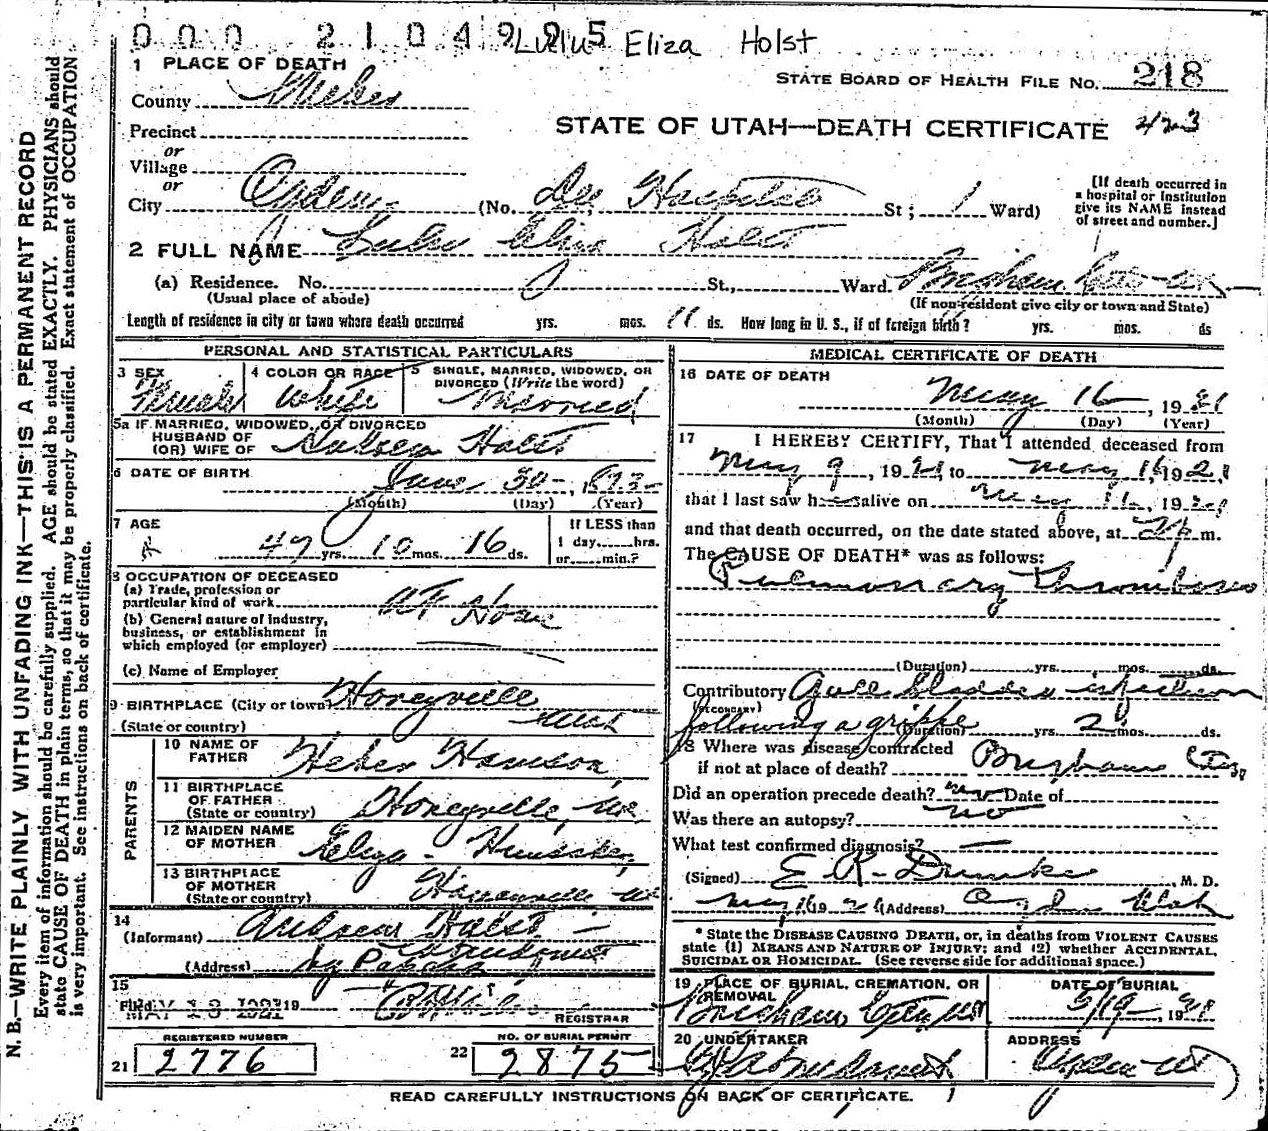 000 2104995 Lulu Eliza Holst
1 PLACE OF DEATH
STATE BOARD OF HEALTH FILE NO. 218
County Weber
Precinct
STATE OF UTAH—DEATH CERTIFICATE 423
or
Village
or
City Ogden (No. Dee Hospital St; 1 Ward)
[If death occurred in a hospital or institution give its NAME instead of street and number.]
2 FULL NAME Lulu Eliza Holst
(a) Residence. No. St., Ward. Brigham City Ut
(Usual place of abode) (If non-resident give city or town and State)
Length of residence in city or town where death occurred yrs. mos. 11 ds. How long in U. S., if of foreign birth? yrs. mos. ds
PERSONAL AND STATISTICAL PARTICULARS
3 SEX Female
4 COLOR OR RACE White
5 SINGLE, MARRIED, WIDOWED, OR DIVORCED (Write the word) Married
5a IF MARRIED, WIDOWED, OR DIVORCED
HUSBAND OF
(OR) WIFE OF Andrew Holst
6 DATE OF BIRTH June 30, 1873
(Month) (Day) (Year)
7 AGE 47 yrs. 10 mos. 16 ds.
If LESS than
1 day, hrs.
or min.?
8 OCCUPATION OF DECEASED
(a) Trade, profession or
particular kind of work At Home
(b) General nature of industry,
business, or establishment in
which employed (or employer)
(c) Name of Employer
9 BIRTHPLACE (City or town) Honeyville
(State or country) Utah
PARENTS
10 NAME OF
FATHER Heber
11 BIRTHPLACE
OF FATHER
(State or country) Honeyville, Ut.
12 MAIDEN NAME
OF MOTHER Eliza Hunsaker
13 BIRTHPLACE
OF MOTHER
(State or country) Honeyville Ut
14
(Informant) Andrew Holst
(Address)
15
Filed MAY 18 1921 19
REGISTRAR
REGISTERED NUMBER
21 2776
NO. OF BURIAL PERMIT
22 2875
MEDICAL CERTIFICATE OF DEATH
16 DATE OF DEATH
May 16, 1921
(Month) (Day) (Year)
17 I HEREBY CERTIFY, That I attended deceased from
May 9, 1921, to May 16 1921
that I last saw her alive on May 16, 1921
and that death occurred, on the date stated above, at 2 p m.
The CAUSE OF DEATH* was as follows:
Pulmonary Thrombosis
(Duration) yrs. mos. ds.
Contributory Gall bladder infection
(SECONDARY)
following a grippe (Duration) yrs. 2 mos. ds.
18 Where was disease contracted
if not at place of death? Brigham City
Did an operation precede death? no Date of
Was there an autopsy? no
What test confirmed diagnosis?
(Signed) E. R. Dumke M. D.
May 16 1921 (Address) Ogden Utah
* State the DISEASE CAUSING DEATH, or, in deaths from VIOLENT CAUSES
state (1) MEANS AND NATURE OF INJURY; and (2) whether ACCIDENTAL,
SUICIDAL OR HOMICIDAL. (See reverse side for additional space.)
19 PLACE OF BURIAL, CREMATION, OR
REMOVAL
Brigham City Ut
DATE OF BURIAL
5/19, 1921
20 UNDERTAKER
ADDRESS
Ogden Ut
READ CAREFULLY INSTRUCTIONS ON BACK OF CERTIFICATE.
N. B.—WRITE PLAINLY WITH UNFADING INK—THIS IS A PERMANENT RECORD
Every item of information should be carefully supplied. AGE should be stated EXACTLY. PHYSICIANS should
state CAUSE OF DEATH in plain terms, so that it may be properly classified. Exact statement of OCCUPATION
is very important. See instructions on back of certificate.